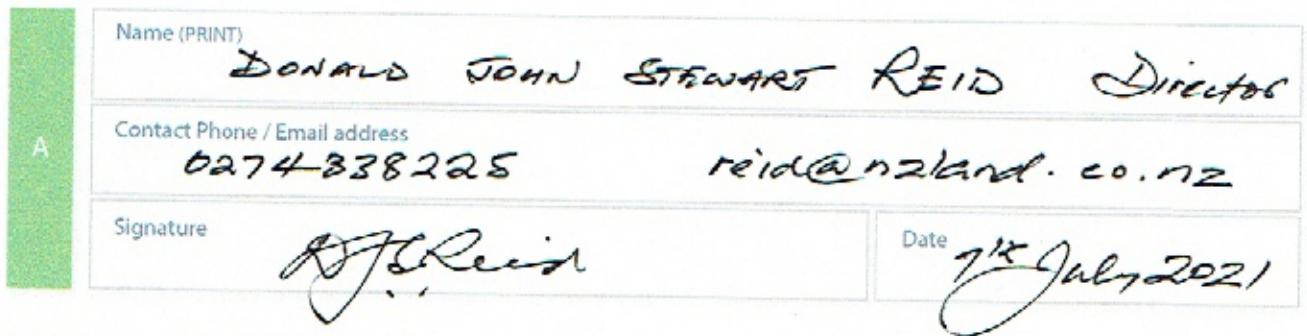 Name (PRINT)
DONALD JOHN STEWART REID Director
A
Contact Phone / Email address
0274338225 reid@nzland.co.nz
Signature
DJSReid
Date
7th July 2021